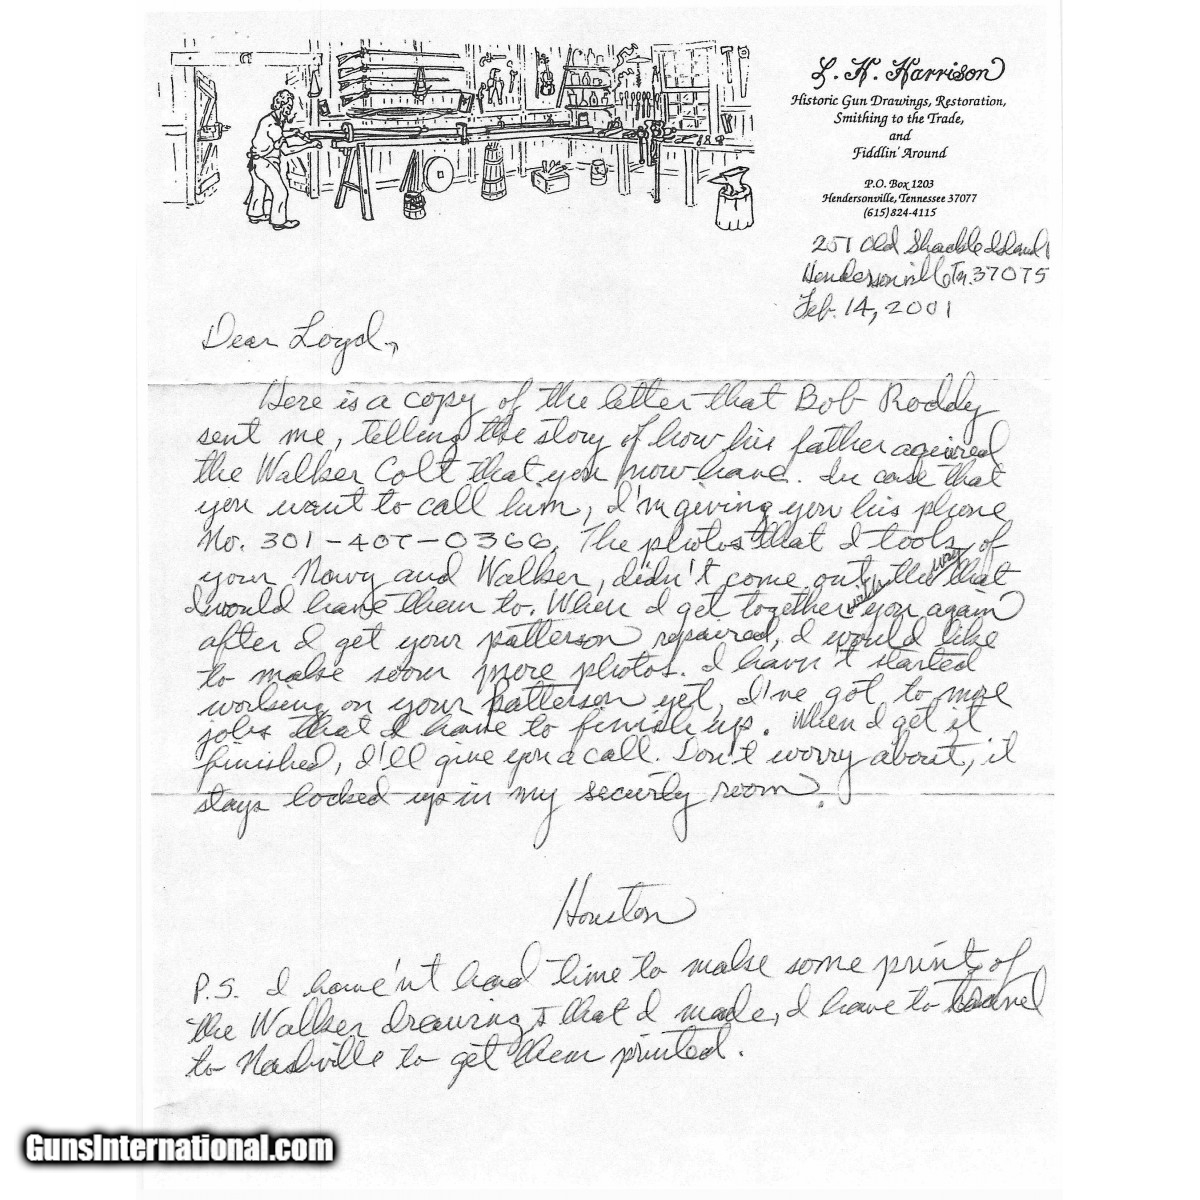 L. H. Harrison
Historic Gun Drawings, Restoration,
Smithing to the Trade,
and
Fiddlin' Around
P.O. Box 1203
Hendersonville, Tennessee 37077
(615)824-4115
251 Old Shackle Island
Hendersonville Tn. 37075
Feb. 14, 2001
Dear Loyd,
Here is a copy of the letter that Bob Roddy
sent me, telling the story of how his father aquired
the Walker Colt that you now have. In case that
you want to call him, I'm giving you his phone
No. 301-407-0366. The photos that I took of
your Navy and Walker, didn't come out the way that
I would have them to. When I get together with you again
after I get your patterson repaired, I would like
to make som more photos. I havn't started
working on your patterson yet, I've got to
jobs that I have to finish up. When I get it
finished, I'll give you a call. Don't worry about, it
stays locked up in my security room.
Houston
P.S. I have'nt had time to make some print of
the Walker drawings that I made, I have to travel
to Nashville to get them printed.
GunsInternational.com